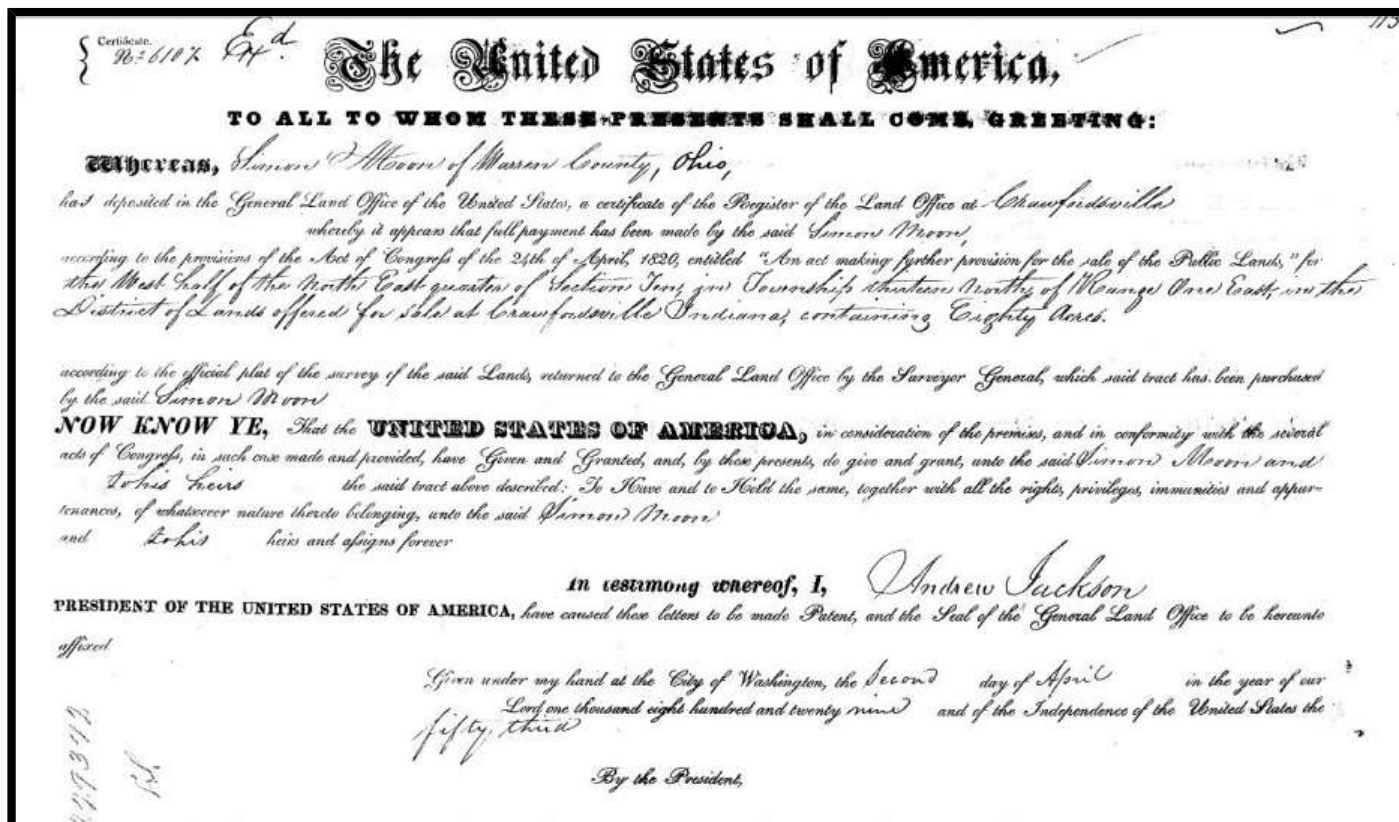 Certificate.
No. 6107 Exd.
113
The United States of America,
TO ALL TO WHOM THESE PRESENTS SHALL COME, GREETING:
Whereas, Simon Moon of Warren County, Ohio,
has deposited in the General Land Office of the United States, a certificate of the Register of the Land Office at Crawfordsville
whereby it appears that full payment has been made by the said Simon Moon,
according to the provisions of the Act of Congress of the 24th of April, 1820, entitled "An act making further provision for the sale of the Public Lands," for
the West half of the North East quarter of Section Ten, in Township thirteen North, of Range One East, in the
District of Lands offered for sale at Crawfordsville Indiana, containing Eighty Acres.
according to the official plat of the survey of the said Lands, returned to the General Land Office by the Surveyor General, which said tract has been purchased
by the said Simon Moon
NOW KNOW YE, That the UNITED STATES OF AMERICA, in consideration of the premises, and in conformity with the several
acts of Congress, in such case made and provided, have Given and Granted, and, by these presents, do give and grant, unto the said Simon Moon and
to his heirs the said tract above described: To Have and to Hold the same, together with all the rights, privileges, immunities and appur-
tenances, of whatsoever nature thereto belonging, unto the said Simon Moon
and to his heirs and assigns forever
In testimony whereof, I, Andrew Jackson
PRESIDENT OF THE UNITED STATES OF AMERICA, have caused these letters to be made Patent, and the Seal of the General Land Office to be hereunto
affixed
Given under my hand at the City of Washington, the Second day of April in the year of our
Lord one thousand eight hundred and twenty nine and of the Independence of the United States the
fifty third
By the President,